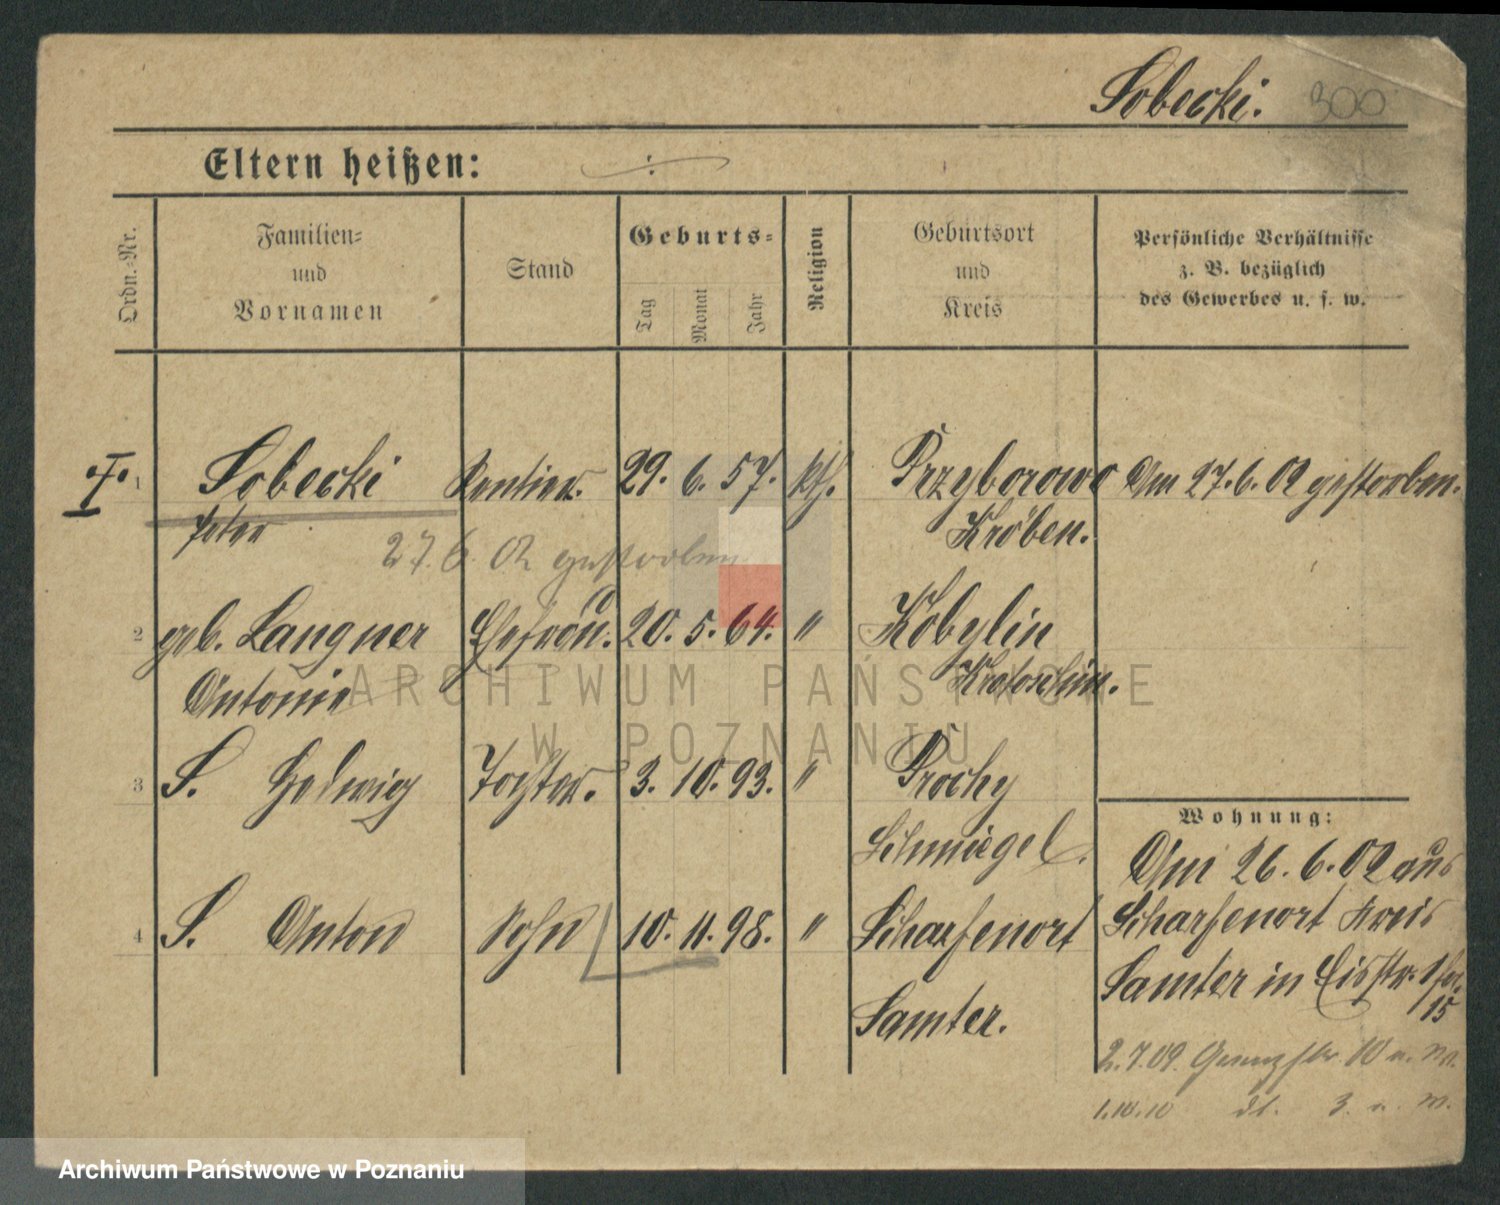 Sobecki. 300
Eltern heißen: ·/·
Ordn.-Nr.
Familien-
und
Vornamen
Stand
Geburts-
Tag
Monat
Jahr
Religion
Geburtsort
und
Kreis
Persönliche Verhältnisse
z. B. bezüglich
des Gewerbes u. s. w.
1 Sobecki Rentier. 29. 6. 57. kth. Przyborowo Am 27.6.02 gestorben.
Peter Kröben.
27.6.02 gestorben
2 geb. Langner Ehefrau. 20. 5. 64. " Kobylin
Antonie Krotoschin.
3 S. Hedwig Tochter. 3. 10. 93. " Prochy
Schmiegel.
4 S. Anton Sohn 10. 11. 98. " Scharfenort
Samter.
Wohnung:
Am 26.6.02 aus
Scharfenort Kreis
Samter in
15
2.7.09. Grenzstr. 10
1.10.10 dt. 3.
ARCHIWUM PAŃSTWOWE
W POZNANIU
Archiwum Państwowe w Poznaniu